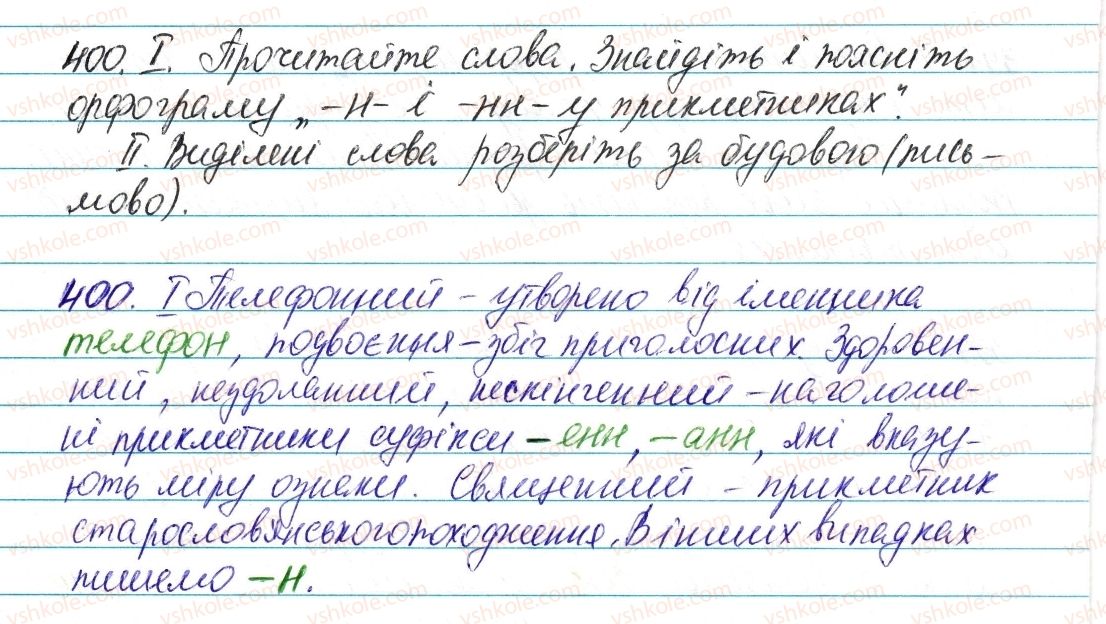 400. I. Прочитайте слова. Знайдіть і поясніть
орфограму „-н- і -нн- у прикметниках".
II. Виділені слова розберіть за будовою (пись-
мово).
400. I Телефонний - утворено від іменника
телефон, подвоєння - збіг приголосних. Здоровен-
ний, нездоланний, нескінченний - наголоше-
ні прикметники суфікси -енн, -анн, які вказу-
ють міру ознаки. Священний - прикметник
старослов'янського походження. В інших випадках
пишемо -н.